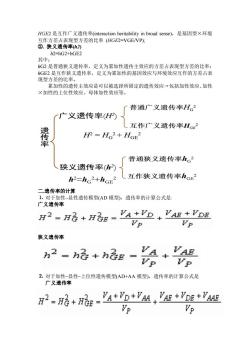 HGE2 是互作广义遗传率(interaction heritability in broad sense), 是基因型×环境
互作方差占表现型方差的比率 (HGE2=VGE/VP);
②. 狭义遗传率(h2)
h2=hG2+hGE2
其中:
hG2 是普通狭义遗传率, 定义为累加性遗传主效应的方差占表现型方差的比率;
hGE2 是互作狭义遗传率, 定义为累加性的基因效应与环境效应互作的方差占表
现型方差的比率。
累加性的遗传主效应是可以被选择所固定的遗传效应—包括加性效应,加性
×加性的上位性效应, 母体加性效应等。
遗传率
广义遗传率(H²)
H² = H_G² + H_GE²
普通广义遗传率H_G²
互作广义遗传率H_GE²
狭义遗传率(h²)
h²=h_G²+h_GE²
普通狭义遗传率h_G²
互作狭义遗传率h_GE²
二.遗传率的计算
1. 对于加性-显性遗传模型(AD 模型), 遗传率的计算公式是
广义遗传率
H² = H_G² + H_GE² = (V_A + V_D)/V_P + (V_AE + V_DE)/V_P
狭义遗传率
h² = h_G² + h_GE² = V_A/V_P + V_AE/V_P
2. 对于加性-显性-上位性遗传模型(AD+AA 模型), 遗传率的计算公式是
广义遗传率
H² = H_G² + H_GE² = (V_A + V_D + V_AA)/V_P + (V_AE + V_DE + V_AAE)/V_P